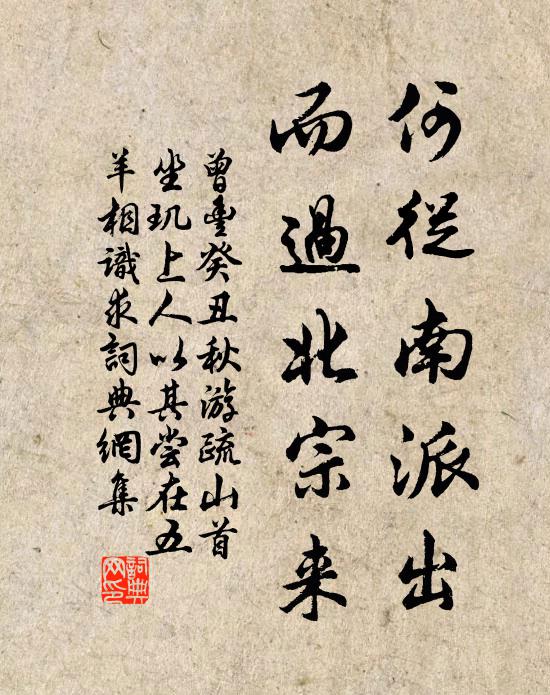 何從南派出
而過北宗来
曾豊癸丑秋游疏山首
坐玑上人以其尝在五
羊相識求詞典網集
詞典
网印